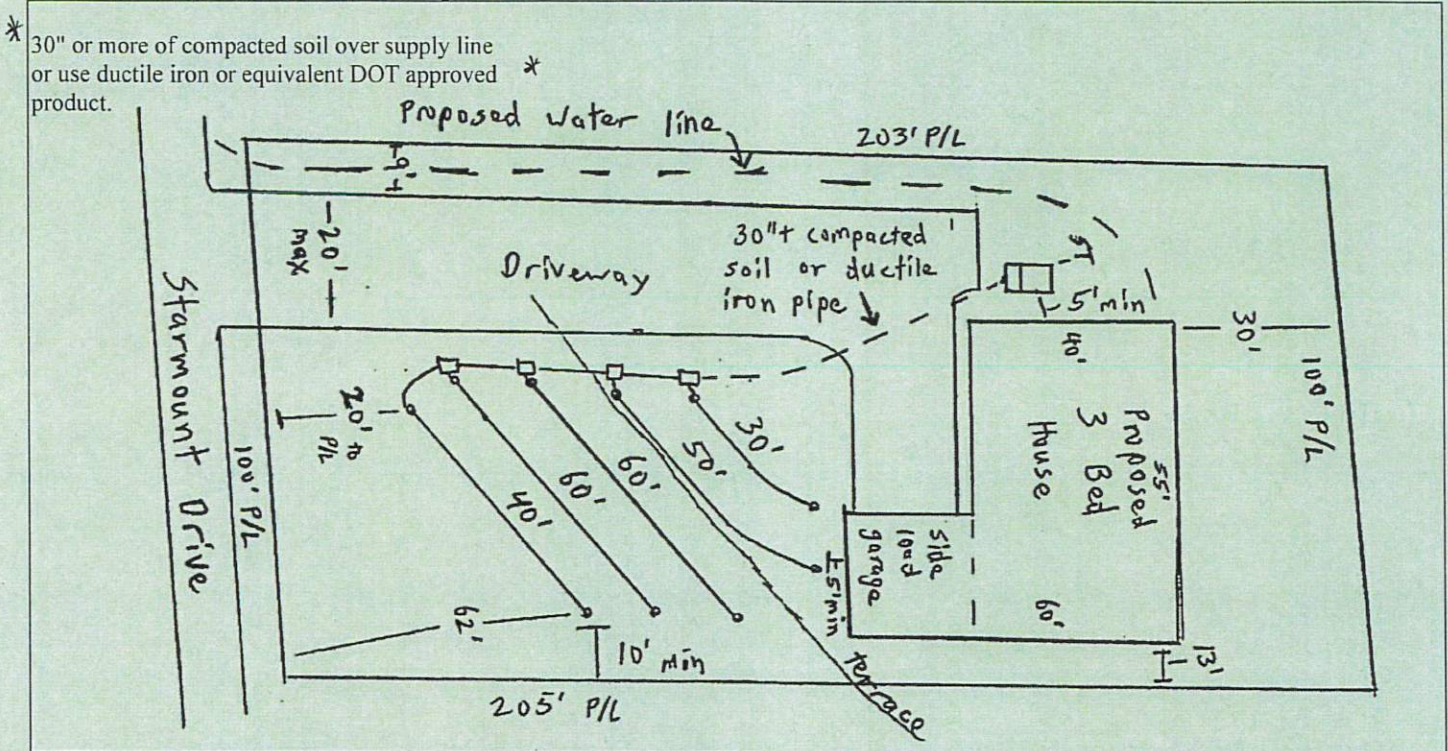 *
30" or more of compacted soil over supply line
or use ductile iron or equivalent DOT approved *
product.
Proposed water line
203' P/L
9'
20'
max
Driveway
30"+ compacted
soil or ductile
iron pipe
ST
5' min
40'
30'
100' P/L
Starmount Drive
100' P/L
20' to
P/L
40'
60'
60'
50'
30'
Proposed
55'
3 Bed
House
side
load
garage
60'
5' min
62'
10' min
13'
terrace
205' P/L